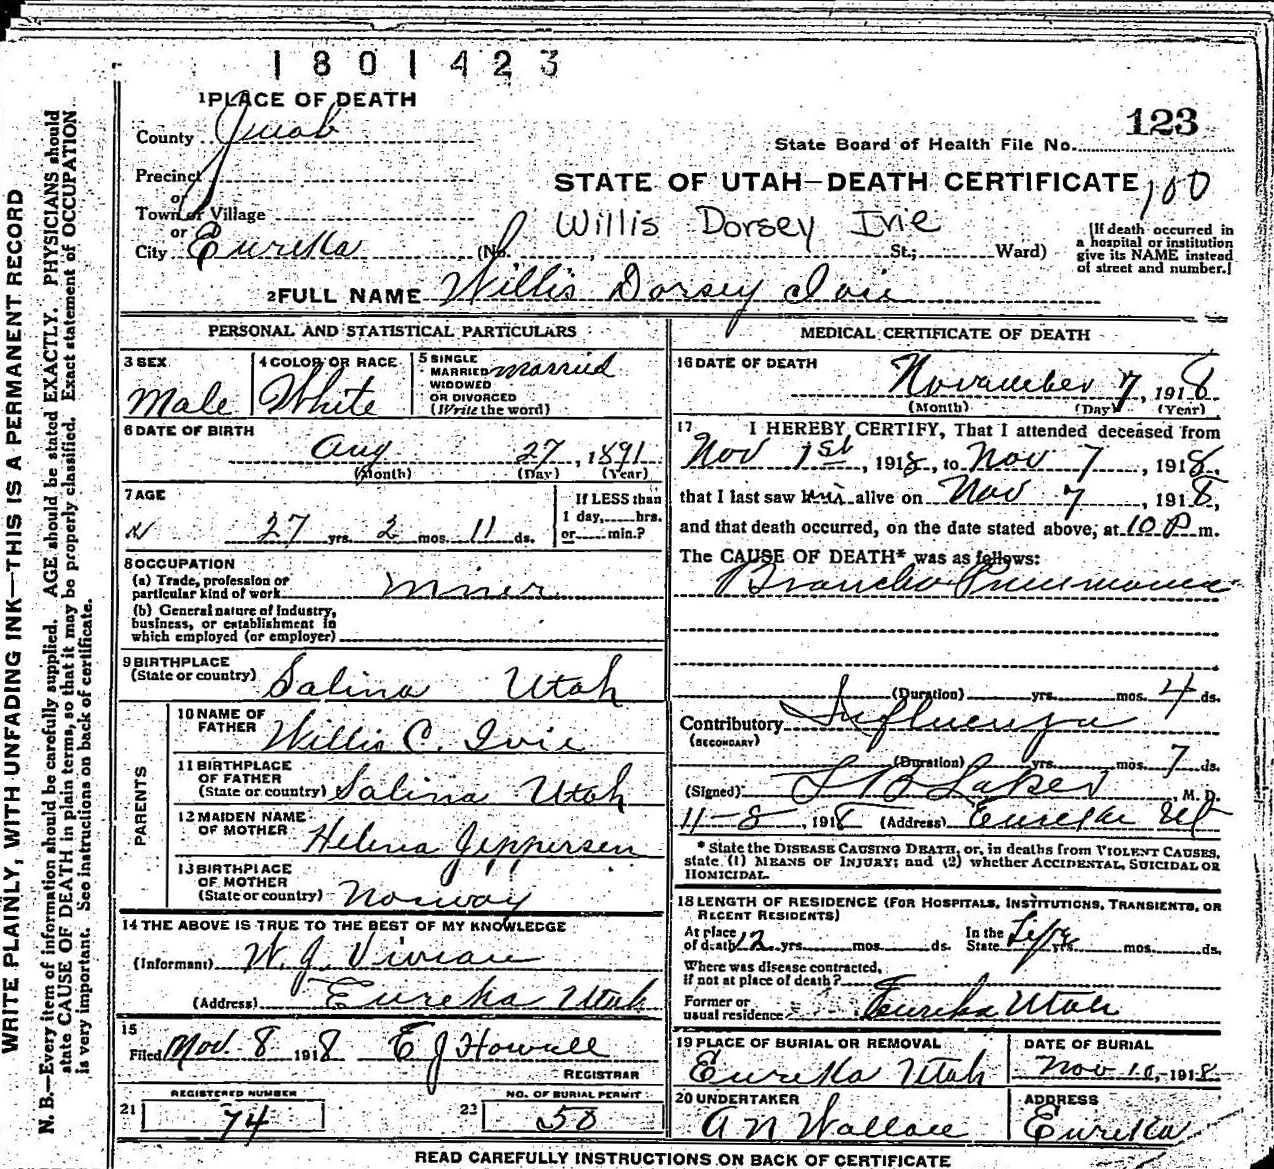 1801423
1 PLACE OF DEATH
123
County Juab
State Board of Health File No.
Precinct
STATE OF UTAH—DEATH CERTIFICATE 100
or
Town or Village
Willis Dorsey Ivie
or
City Eureka (No. , St.; Ward)
[If death occurred in
a hospital or institution
give its NAME instead
of street and number.]
2 FULL NAME Willis Dorsey Ivie
PERSONAL AND STATISTICAL PARTICULARS
3 SEX
Male
4 COLOR OR RACE
White
5 SINGLE
MARRIED married
WIDOWED
OR DIVORCED
(Write the word)
6 DATE OF BIRTH
Aug 27, 1891
(Month) (Day) (Year)
7 AGE
27 yrs. 2 mos. 11 ds.
If LESS than
1 day, hrs.
or min.?
8 OCCUPATION
(a) Trade, profession or
particular kind of work Miner
(b) General nature of industry,
business, or establishment in
which employed (or employer)
9 BIRTHPLACE
(State or country) Salina Utah
PARENTS
10 NAME OF
FATHER Willis C. Ivie
11 BIRTHPLACE
OF FATHER
(State or country) Salina Utah
12 MAIDEN NAME
OF MOTHER Helena Jeppersen
13 BIRTHPLACE
OF MOTHER
(State or country) Norway
14 THE ABOVE IS TRUE TO THE BEST OF MY KNOWLEDGE
(Informant) W. J. Vivian
(Address) Eureka Utah
15
Filed Nov. 8 1918 E J Howell
REGISTRAR
REGISTERED NUMBER
21 74
NO. OF BURIAL PERMIT
50
MEDICAL CERTIFICATE OF DEATH
16 DATE OF DEATH
November 7, 1918
(Month) (Day) (Year)
17 I HEREBY CERTIFY, That I attended deceased from
Nov 1st, 1918, to Nov 7, 1918,
that I last saw him alive on Nov 7, 1918,
and that death occurred, on the date stated above, at 10 P m.
The CAUSE OF DEATH* was as follows:
Broncho Pneumonia
(Duration) yrs. mos. 4 ds.
Contributory Influenza
(SECONDARY)
(Duration) yrs. mos. 7 ds.
(Signed) , M. D.
11-8, 1918 (Address) Eureka Ut
* State the DISEASE CAUSING DEATH, or, in deaths from VIOLENT CAUSES,
state (1) MEANS OF INJURY; and (2) whether ACCIDENTAL, SUICIDAL OR
HOMICIDAL.
18 LENGTH OF RESIDENCE (FOR HOSPITALS, INSTITUTIONS, TRANSIENTS, OR
RECENT RESIDENTS)
At place
of death 12 yrs. mos. ds.
In the
State Life yrs. mos. ds.
Where was disease contracted,
if not at place of death?
Former or
usual residence Eureka Utah
19 PLACE OF BURIAL OR REMOVAL
Eureka Utah
DATE OF BURIAL
Nov 10, 1918
20 UNDERTAKER
A N Wallace
ADDRESS
Eureka
READ CAREFULLY INSTRUCTIONS ON BACK OF CERTIFICATE
WRITE PLAINLY, WITH UNFADING INK—THIS IS A PERMANENT RECORD
N. B.—Every item of information should be carefully supplied. AGE should be stated EXACTLY. PHYSICIANS should
state CAUSE OF DEATH in plain terms, so that it may be properly classified. Exact statement of OCCUPATION
is very important. See instructions on back of certificate.